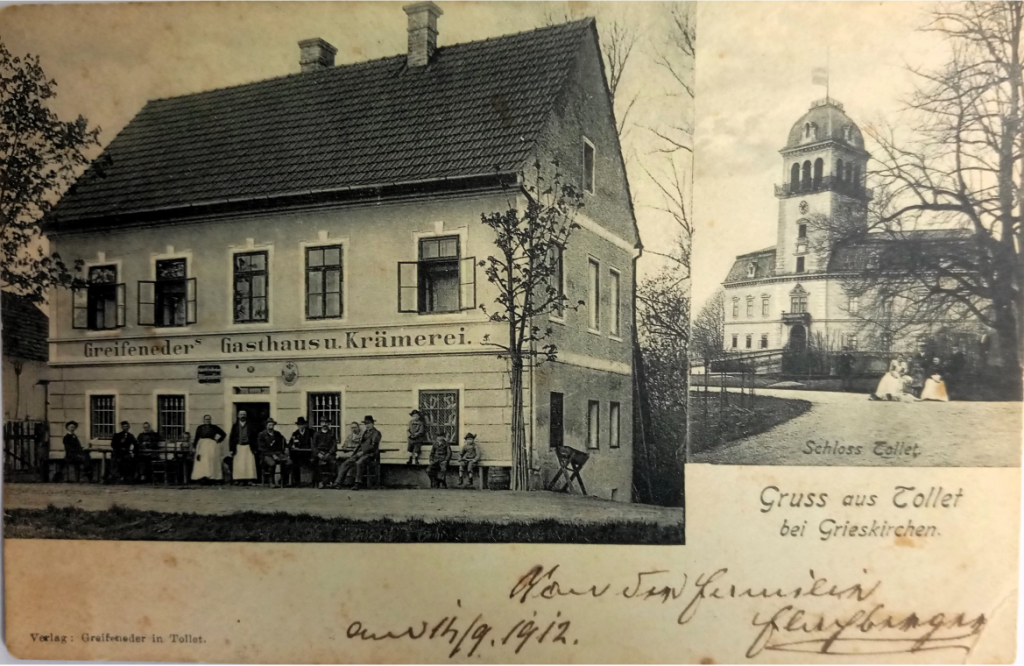 Greifeneders Gasthaus u. Krämerei.
Schloss Tollet.
Gruss aus Tollet
bei Grieskirchen.
Von der Familie
am 14/9. 1912.
Verlag: Greifeneder in Tollet.